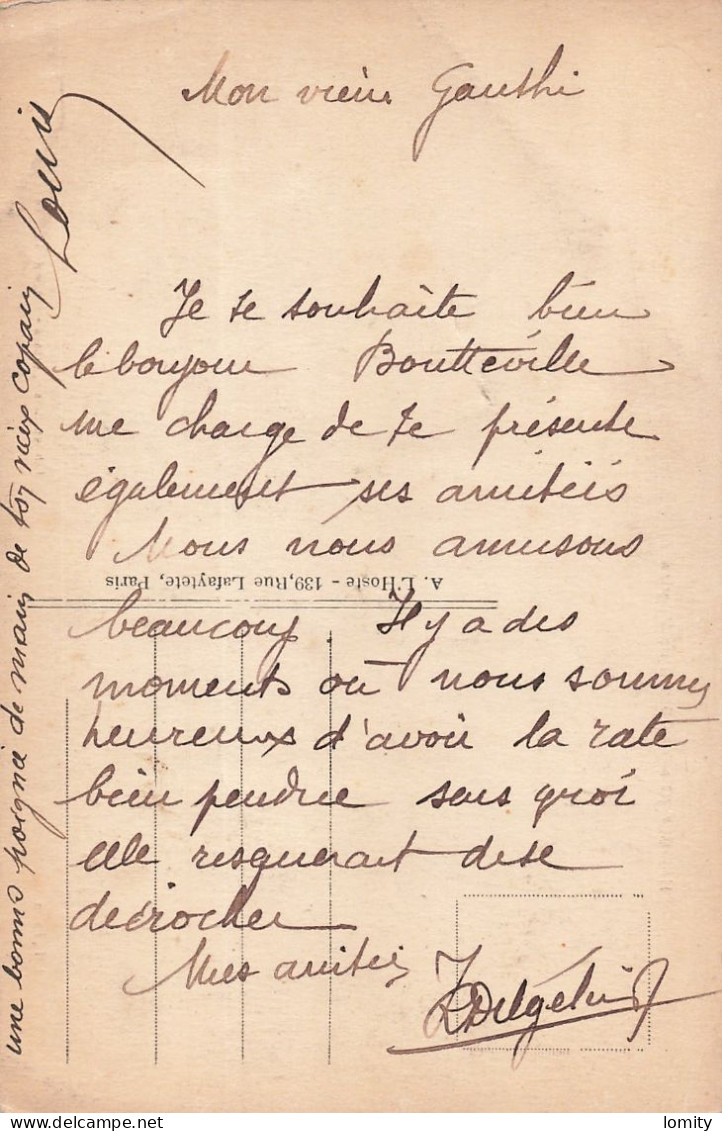 Mon vieux Gauthi
Je te souhaite bien
le bonjour Boutteville
me charge de te présente
également ses amitiés
Nous nous amusons
A. L'Hoste - 139, Rue Lafaytete, Paris
beaucoup. Il y a des
moments où nous sommes
heureux d'avoir la rate
bien pendue sans quoi
elle risquerait de se
décrocher
Mes amitiés
une bonne poignée de main de ton vieux copain
Louis
© delcampe.net
lomity